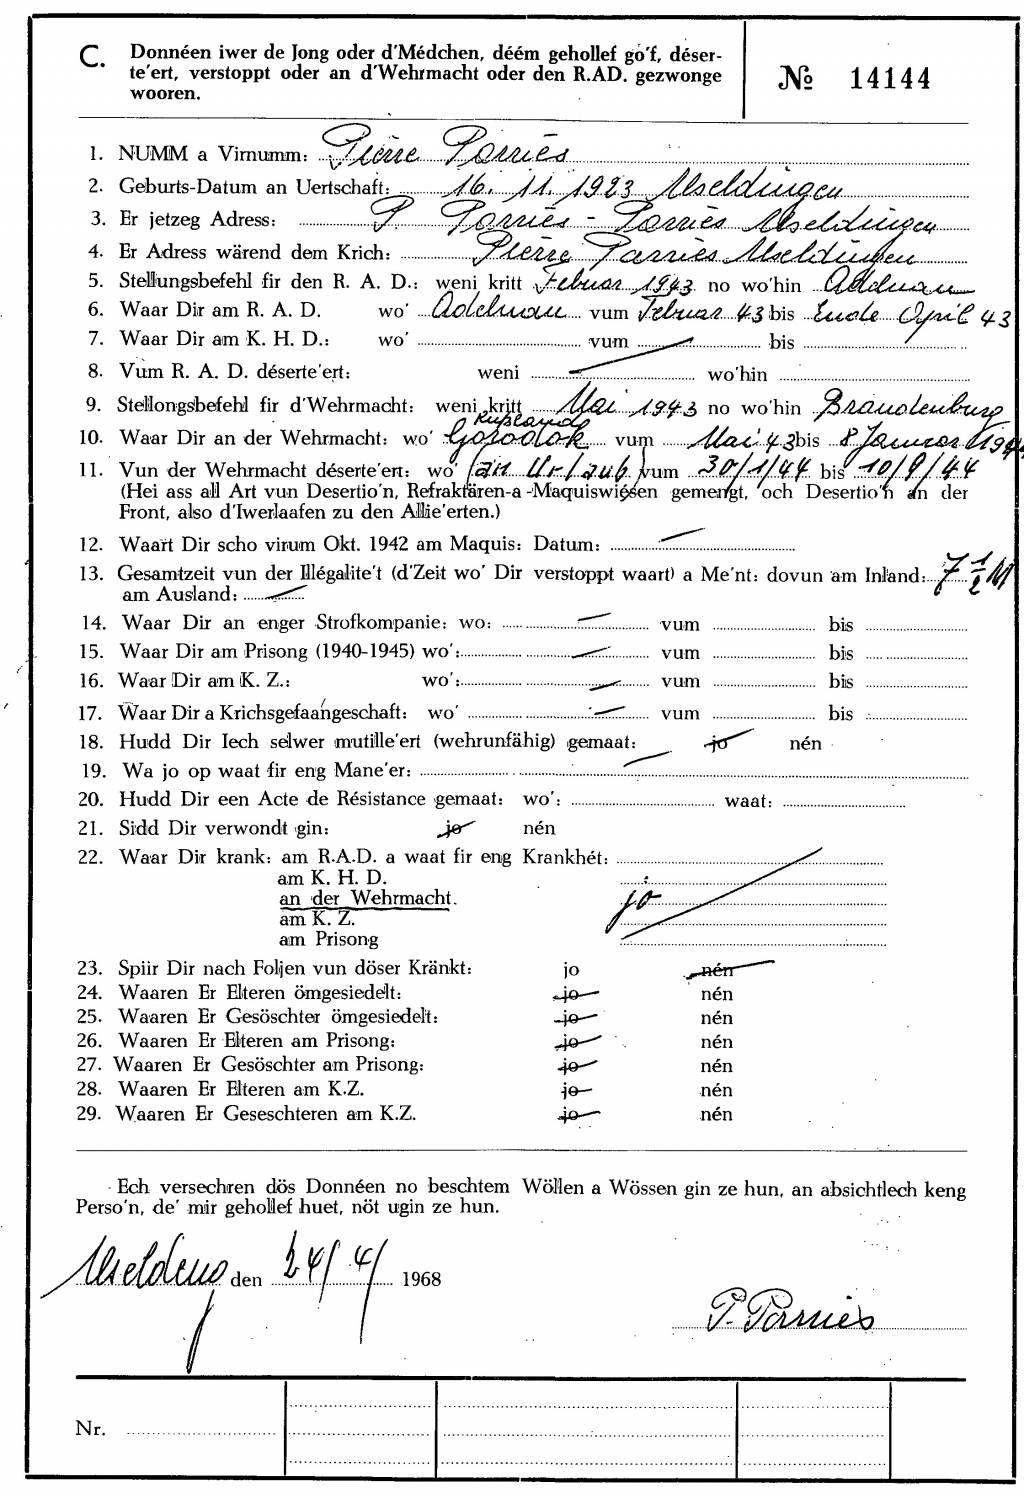 C. Donnéen iwer de Jong oder d'Médchen, déém gehollef go'f, déser-
te'ert, verstoppt oder an d'Wehrmacht oder den R.AD. gezwonge
wooren.
№ 14144
1. NUMM a Virnumm: Pierre Parriès
2. Geburts-Datum an Uertschaft: 16. 11. 1923 Useldingen
3. Er jetzeg Adress: P. Parriès - Parriès Useldingen
4. Er Adress wärend dem Krich: Pierre Parriès Useldingen
5. Stellungsbefehl fir den R. A. D.: weni kritt Februar 1943 no wo'hin Adelnau
6. Waar Dir am R. A. D. wo' Adelnau vum Februar 43 bis Ende April 43
7. Waar Dir am K. H. D.: wo' vum bis
8. Vum R. A. D. déserte'ert: weni wo'hin
9. Stellongsbefehl fir d'Wehrmacht: weni kritt Mai 1943 no wo'hin Brandenburg
10. Waar Dir an der Wehrmacht: wo' Rußland Gorodok vum Mai 43 bis 8 Januar 1944
11. Vun der Wehrmacht déserte'ert: wo' (an Urlaub) vum 30/1/44 bis 10/9/44
(Hei ass all Art vun Desertio'n, Refraktären-a -Maquiswiésen gemengt, och Desertio'n an der
Front, also d'Iwerlaafen zu den Allie'erten.)
12. Waart Dir scho virum Okt. 1942 am Maquis: Datum:
13. Gesamtzeit vun der Illégalite't (d'Zeit wo' Dir verstoppt waart) a Me'nt: dovun am Inland: 7 1/2 M
am Ausland:
14. Waar Dir an enger Strofkompanie: wo: vum bis
15. Waar Dir am Prisong (1940-1945) wo': vum bis
16. Waar Dir am K. Z.: wo': vum bis
17. Waar Dir a Krichsgefaangeschaft: wo' vum bis
18. Hudd Dir Iech selwer mutille'ert (wehrunfähig) gemaat: jo nén
19. Wa jo op waat fir eng Mane'er:
20. Hudd Dir een Acte de Résistance gemaat: wo': waat:
21. Sidd Dir verwondt gin: jo nén
22. Waar Dir krank: am R.A.D. a waat fir eng Krankhét:
am K. H. D.
an der Wehrmacht. jo
am K. Z.
am Prisong
23. Spiir Dir nach Foljen vun döser Kränkt: jo nén
24. Waaren Er Elteren ömgesiedelt: jo nén
25. Waaren Er Gesöschter ömgesiedelt: jo nén
26. Waaren Er Elteren am Prisong: jo nén
27. Waaren Er Gesöschter am Prisong: jo nén
28. Waaren Er Elteren am K.Z. jo nén
29. Waaren Er Geseschteren am K.Z. jo nén
Ech versechren dös Donnéen no beschtem Wöllen a Wössen gin ze hun, an absichtlech keng
Perso'n, de' mir gehollef huet, nöt ugin ze hun.
Useldeng den 24/4/ 1968
P. Parriès
Nr.